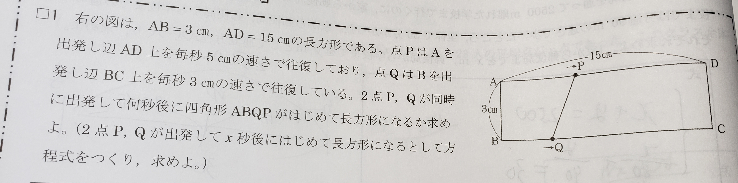 □1 右の図は，AB＝3㎝，AD＝15㎝の長方形である。点PはAを
出発し辺AD上を毎秒5㎝の速さで往復しており，点QはBを出
発し辺BC上を毎秒3㎝の速さで往復している。2点P，Qが同時
に出発して何秒後に四角形ABQPがはじめて長方形になるか求め
よ。(2点P，Qが出発してx秒後にはじめて長方形になるとして方
程式をつくり，求めよ。)
15cm
→P
D
A
3cm
B
→Q
C